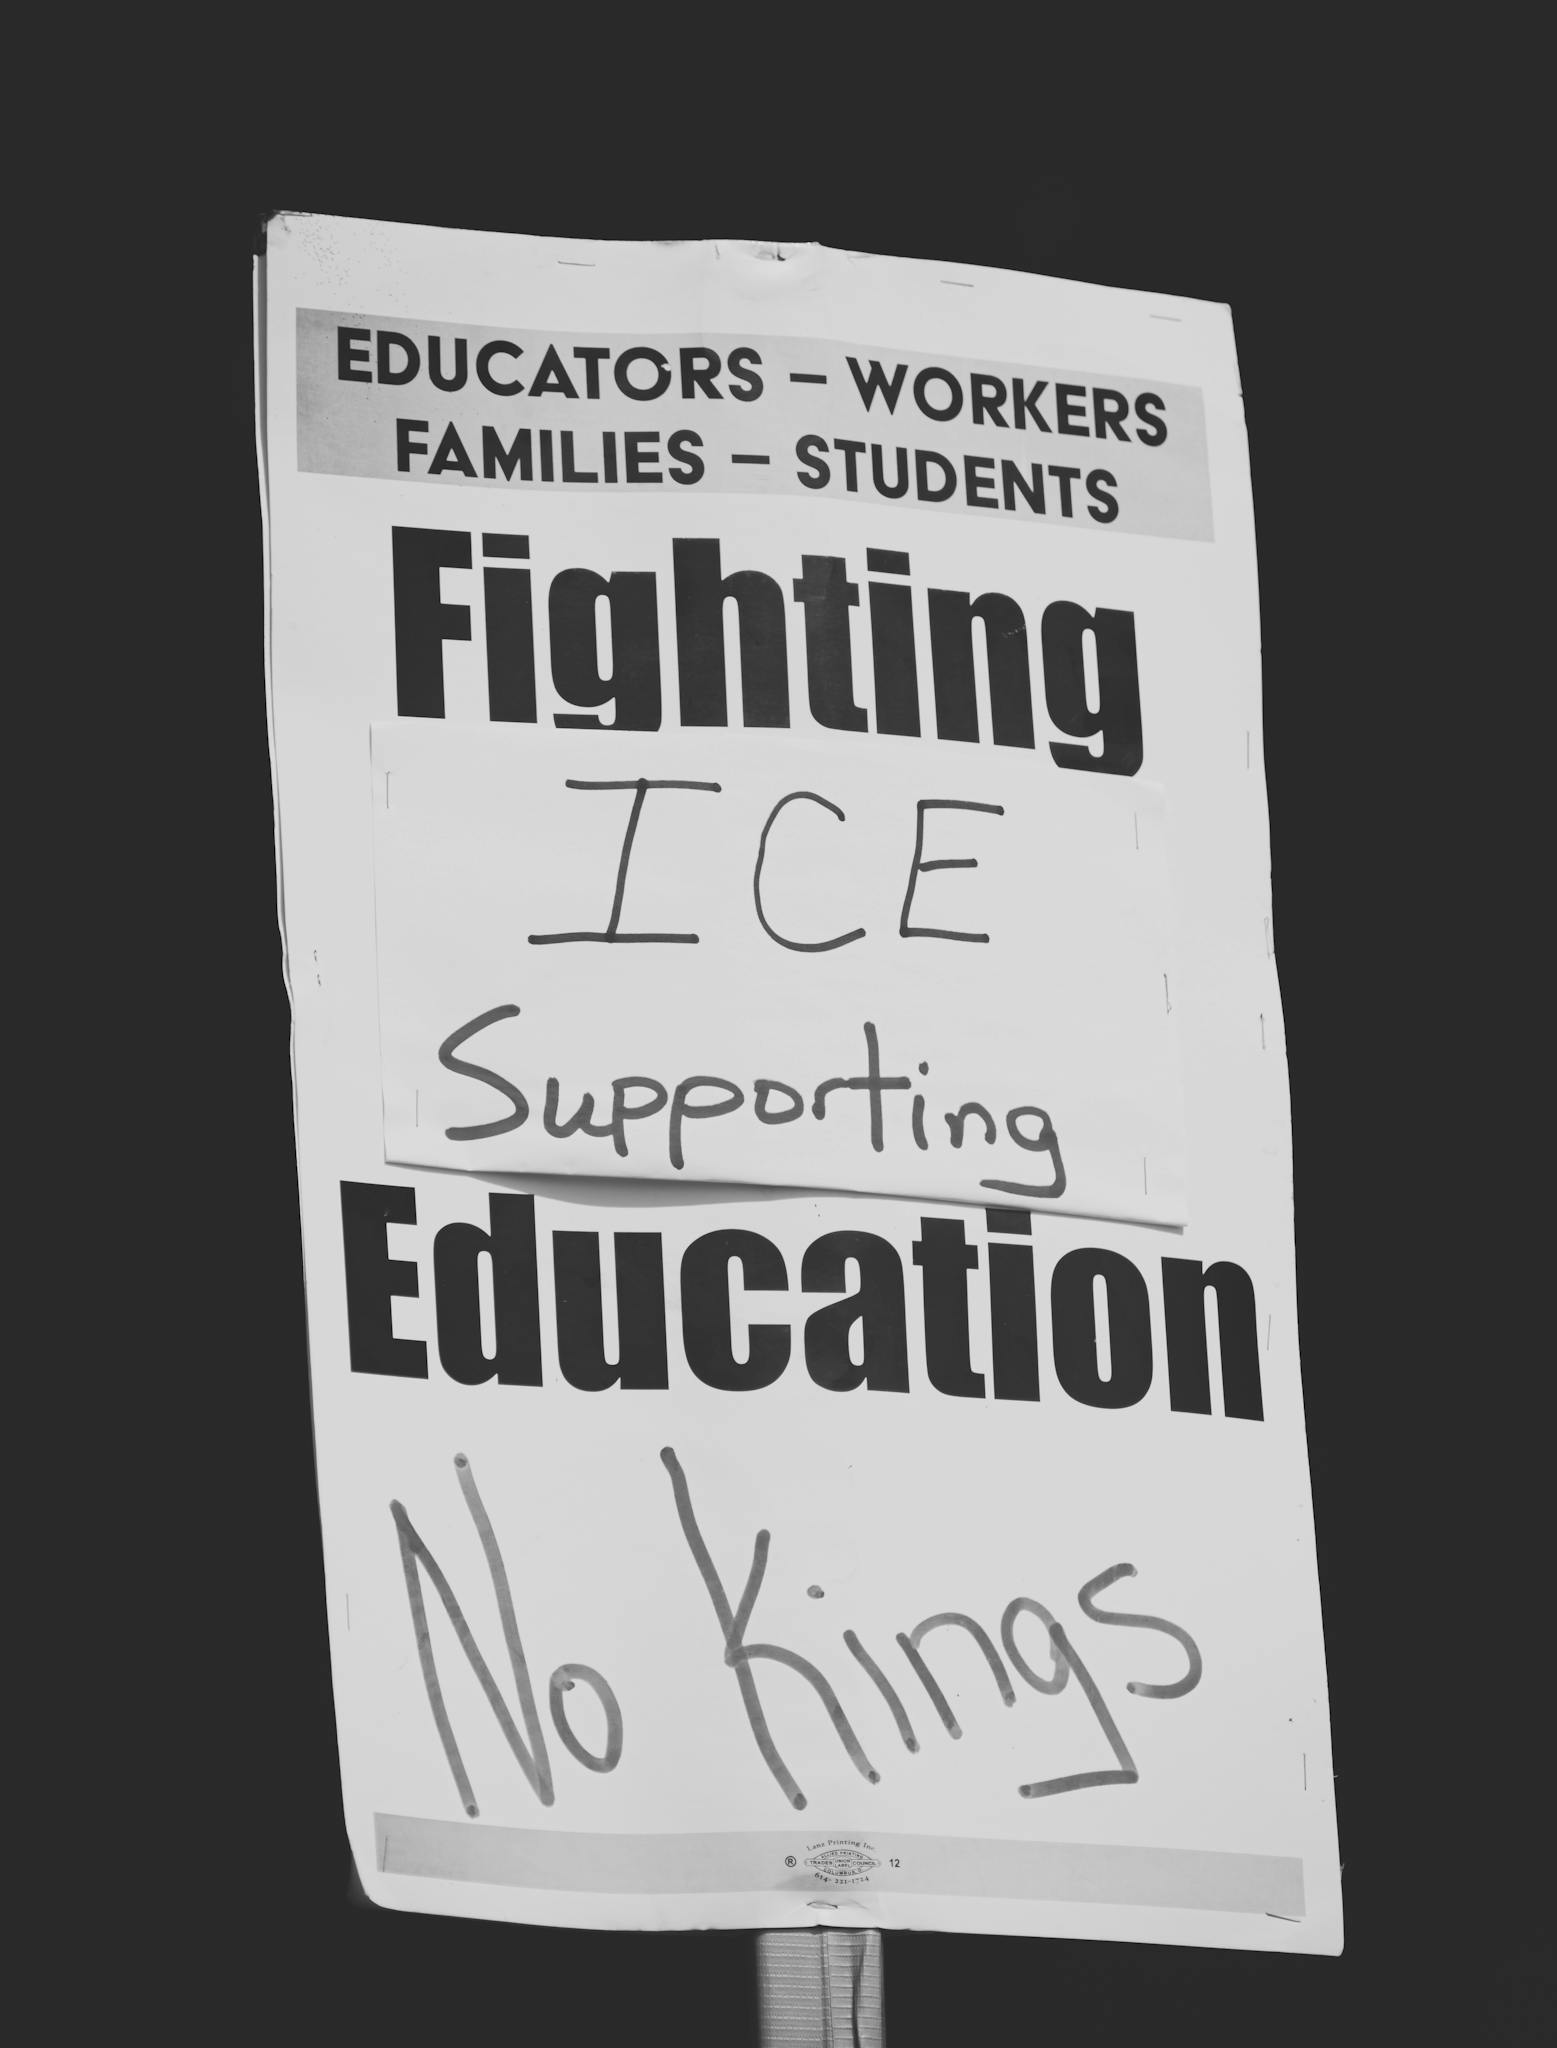 EDUCATORS – WORKERS
FAMILIES – STUDENTS
Fighting
ICE
Supporting
Education
No Kings
Lanz Printing Inc.
ALLIED PRINTING
® TRADES UNION LABEL COUNCIL 12
COLUMBUS, O
614-221-1724